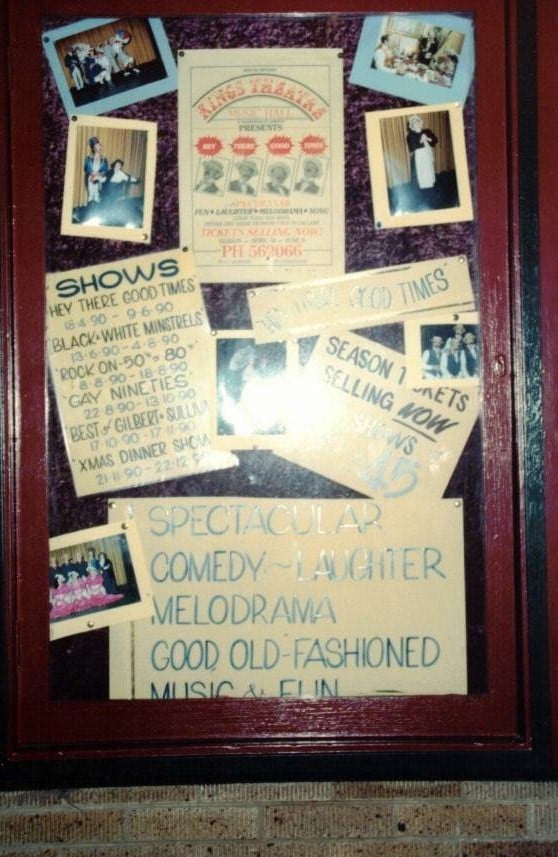 KINGS THEATRE
MUSIC HALL
PRESENTS
HEY THERE GOOD TIMES
SPECTACULAR
FUN • LAUGHTER • MELODRAMA • SONG
TICKETS SELLING NOW!
PH 562066
SHOWS
HEY THERE GOOD TIMES
18·4·90 - 9·6·90
BLACK & WHITE MINSTRELS
13·6·90 - 4·8·90
ROCK ON - 50's 80's
8·8·90 - 18·8·90
GAY NINETIES
22·8·90 - 13·10·90
BEST of GILBERT & SULLIV
17·10·90 - 17·11·90
XMAS DINNER SHOW
21·11·90 - 22·12·90
GOOD TIMES
SEASON 1 KETS
SELLING NOW
SHOWS
45
SPECTACULAR
COMEDY ~ LAUGHTER
MELODRAMA
GOOD OLD-FASHIONED
MUSIC & FUN